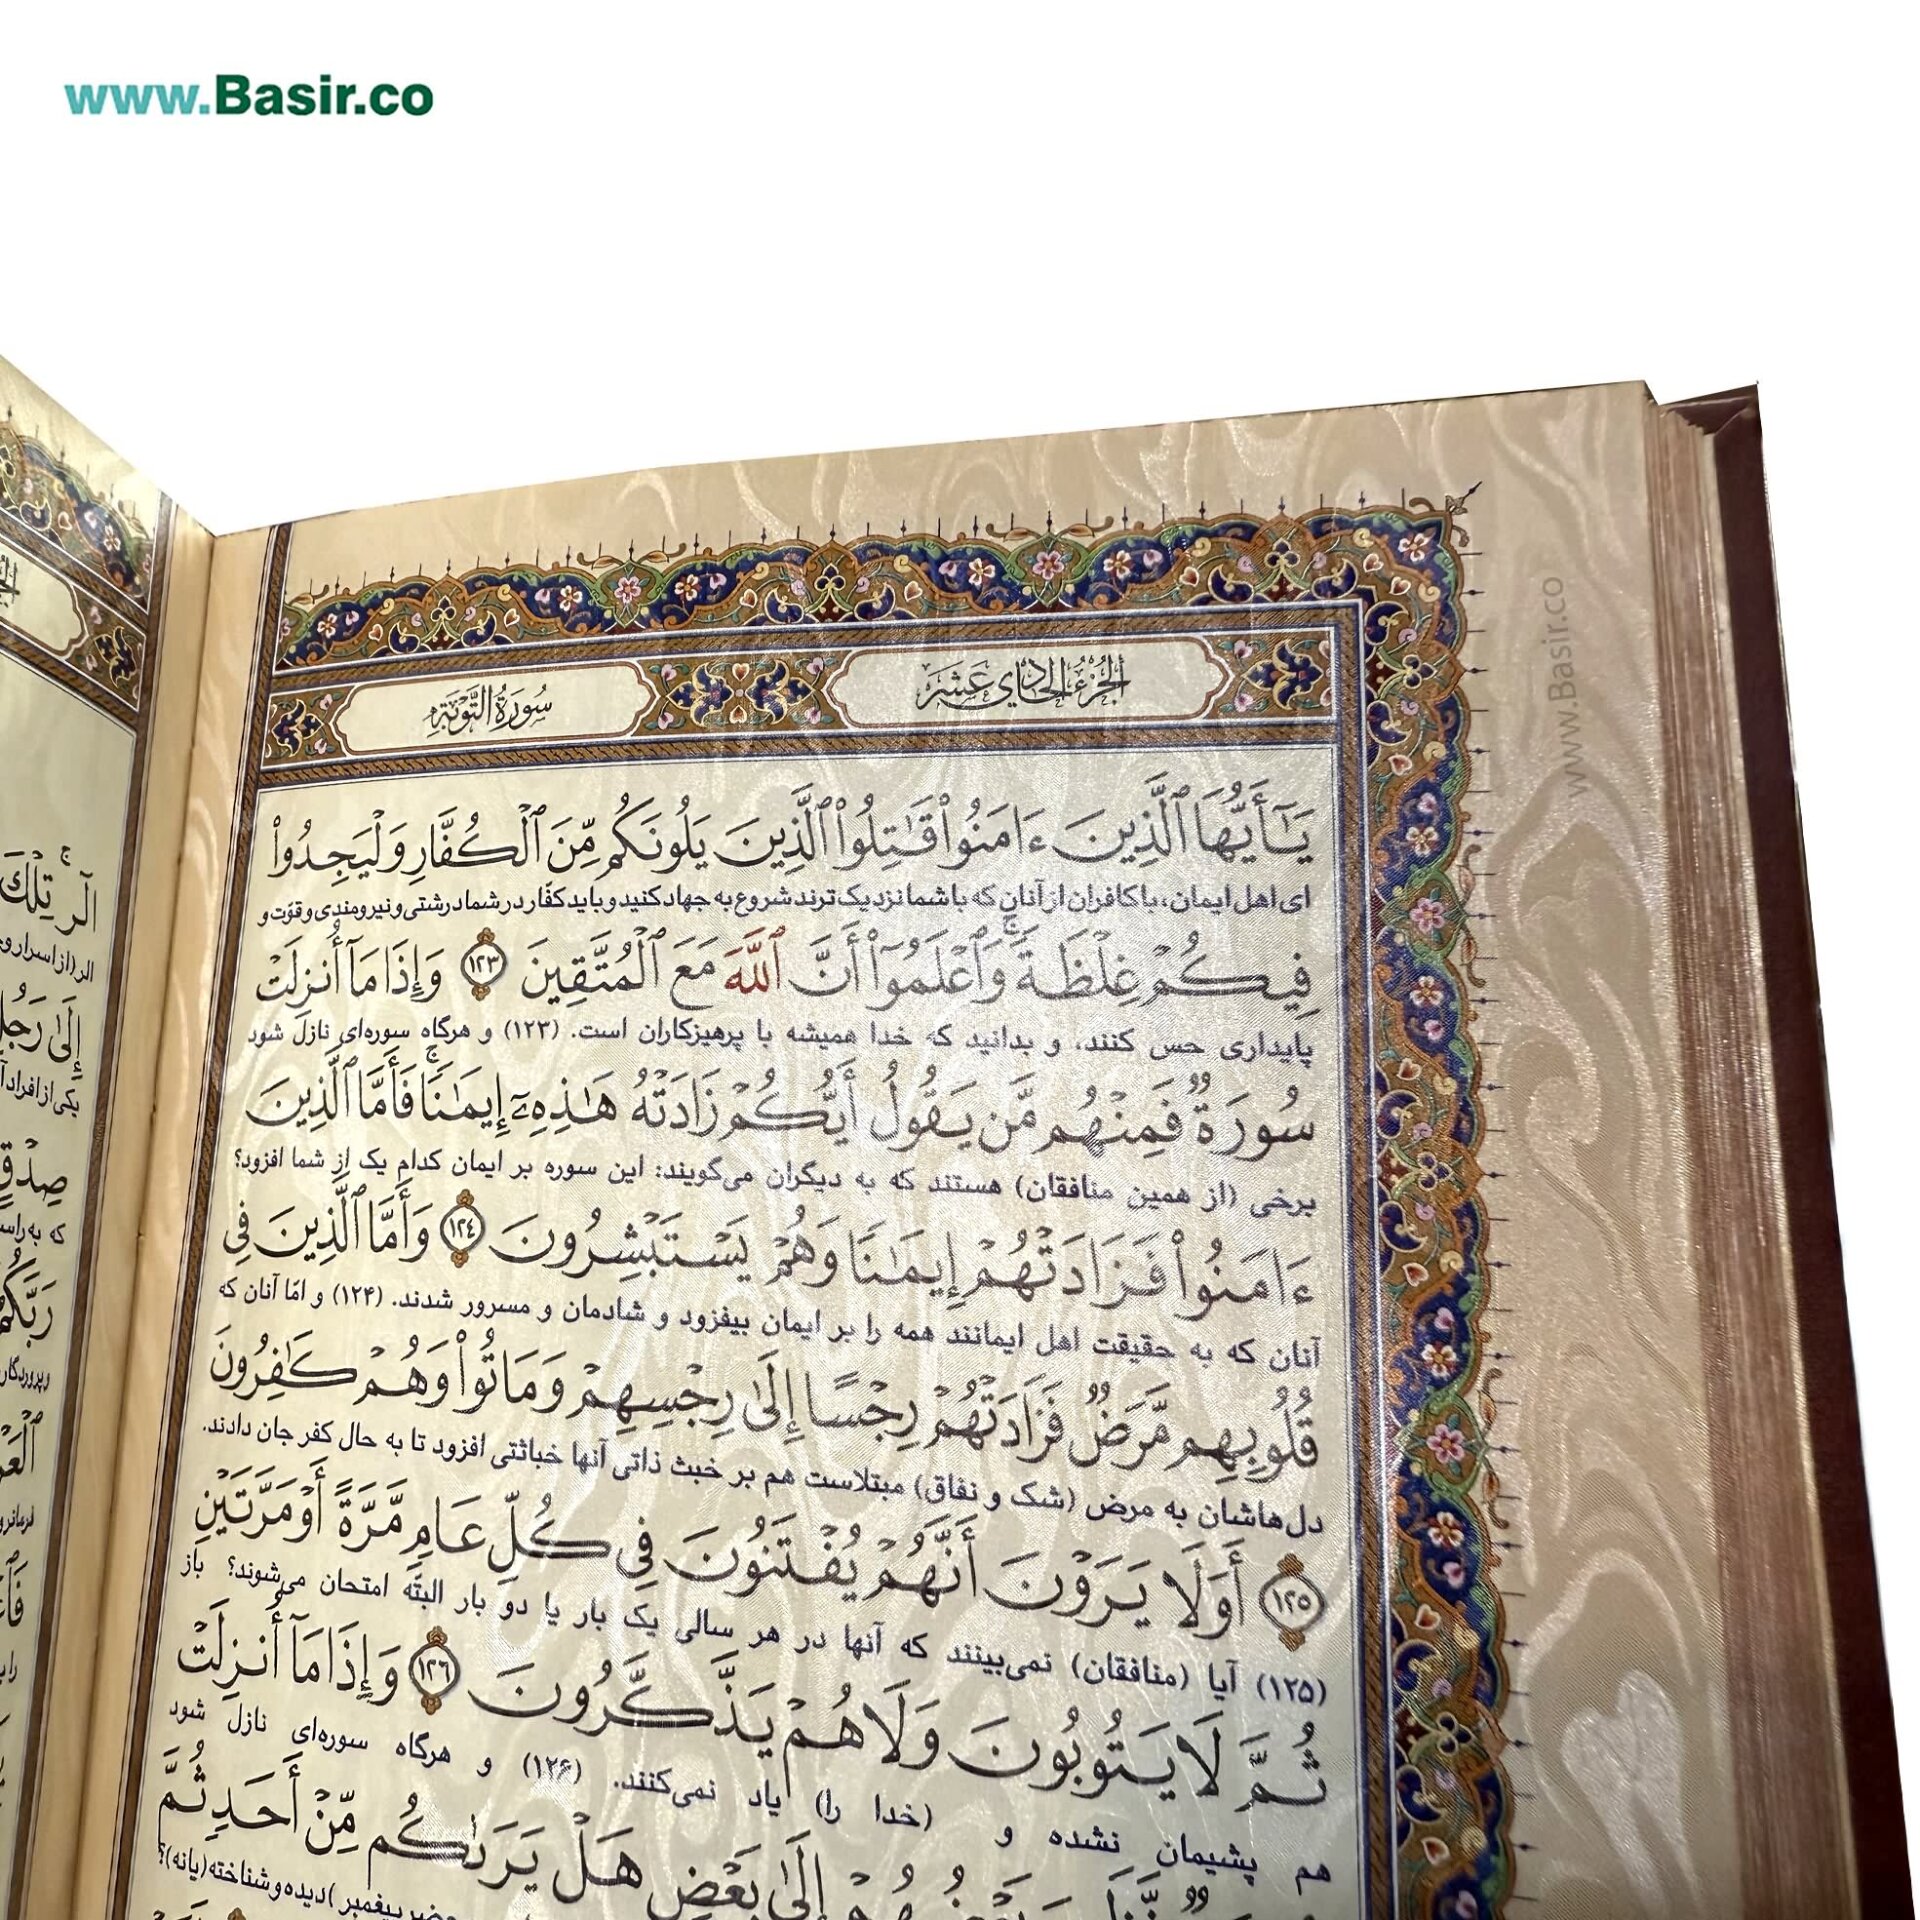 www.Basir.co
الجُزْءُ الحَادِي عَشَر
سُورَةُ التَّوْبَةِ
يَٰٓأَيُّهَا ٱلَّذِينَ ءَامَنُوا۟ قَٰتِلُوا۟ ٱلَّذِينَ يَلُونَكُم مِّنَ ٱلْكُفَّارِ وَلْيَجِدُوا۟
ای اهل ایمان، با کافران از آنان که با شما نزدیک‌ترند شروع به جهاد کنید و باید کفّار در شما درشتی و نیرومندی و قوّت و
فِيكُمْ غِلْظَةً ۚ وَٱعْلَمُوٓا۟ أَنَّ ٱللَّهَ مَعَ ٱلْمُتَّقِينَ ١٢٣ وَإِذَا مَآ أُنزِلَتْ
پایداری حس کنند، و بدانید که خدا همیشه با پرهیزکاران است. (۱۲۳) و هرگاه سوره‌ای نازل شود
سُورَةٌ فَمِنْهُم مَّن يَقُولُ أَيُّكُمْ زَادَتْهُ هَٰذِهِۦٓ إِيمَٰنًا ۚ فَأَمَّا ٱلَّذِينَ
برخی (از همین منافقان) هستند که به دیگران می‌گویند: این سوره بر ایمان کدام یک از شما افزود؟
ءَامَنُوا۟ فَزَادَتْهُمْ إِيمَٰنًا وَهُمْ يَسْتَبْشِرُونَ ١٢٤ وَأَمَّا ٱلَّذِينَ فِى
آنان که به حقیقت اهل ایمانند همه را بر ایمان بیفزود و شادمان و مسرور شدند. (۱۲۴) و امّا آنان که
قُلُوبِهِم مَّرَضٌ فَزَادَتْهُمْ رِجْسًا إِلَىٰ رِجْسِهِمْ وَمَاتُوا۟ وَهُمْ كَٰفِرُونَ
دل‌هاشان به مرض (شک و نفاق) مبتلاست هم بر خبث ذاتی آنها خباثتی افزود تا به حال کفر جان دادند.
١٢٥ أَوَلَا يَرَوْنَ أَنَّهُمْ يُفْتَنُونَ فِى كُلِّ عَامٍ مَّرَّةً أَوْ مَرَّتَيْنِ
(۱۲۵) آیا (منافقان) نمی‌بینند که آنها در هر سالی یک بار یا دو بار البتّه امتحان می‌شوند؟ باز
ثُمَّ لَا يَتُوبُونَ وَلَا هُمْ يَذَّكَّرُونَ ١٢٦ وَإِذَا مَآ أُنزِلَتْ
هم پشیمان نشده و (خدا را) یاد نمی‌کنند. (۱۲۶) و هرگاه سوره‌ای نازل شود
بَعْضُهُمْ إِلَىٰ بَعْضٍ هَلْ يَرَىٰكُم مِّنْ أَحَدٍ ثُمَّ
دیده و شناخته (یا نه)؟
www.Basir.co
الٓر ۚ تِلْكَ
الر (از اسرار
إِلَىٰ رَجُلٍ
یکی از افراد
صِدْقٍ
که به
رَبَّكُمُ